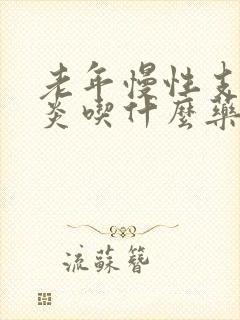 老年慢性支
炎喫什麼藥
流蘇簪